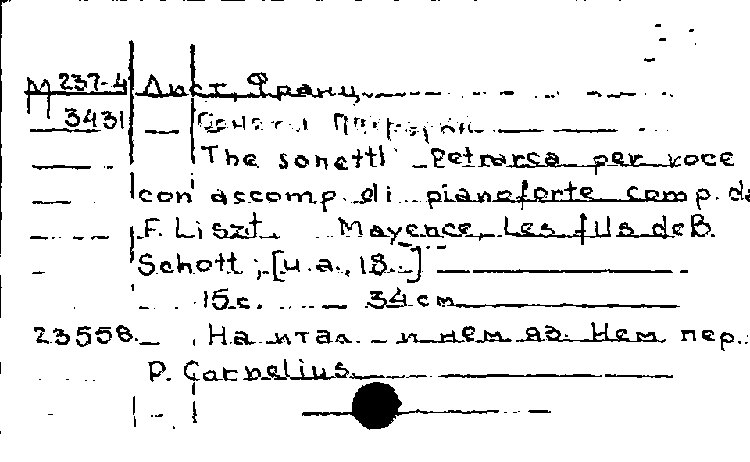 М 237-4 Лист, Франц.
3431 Сонеты Петрарки
The sonetti Petrarca per voce
con accomp. di pianoforte comp. da
F. Liszt. Mayence, Les fils de B.
Schott; [u.a., 18..]
15 с. 34 cm
23558. На итал. и нем. яз. Нем. пер.
P. Cornelius.